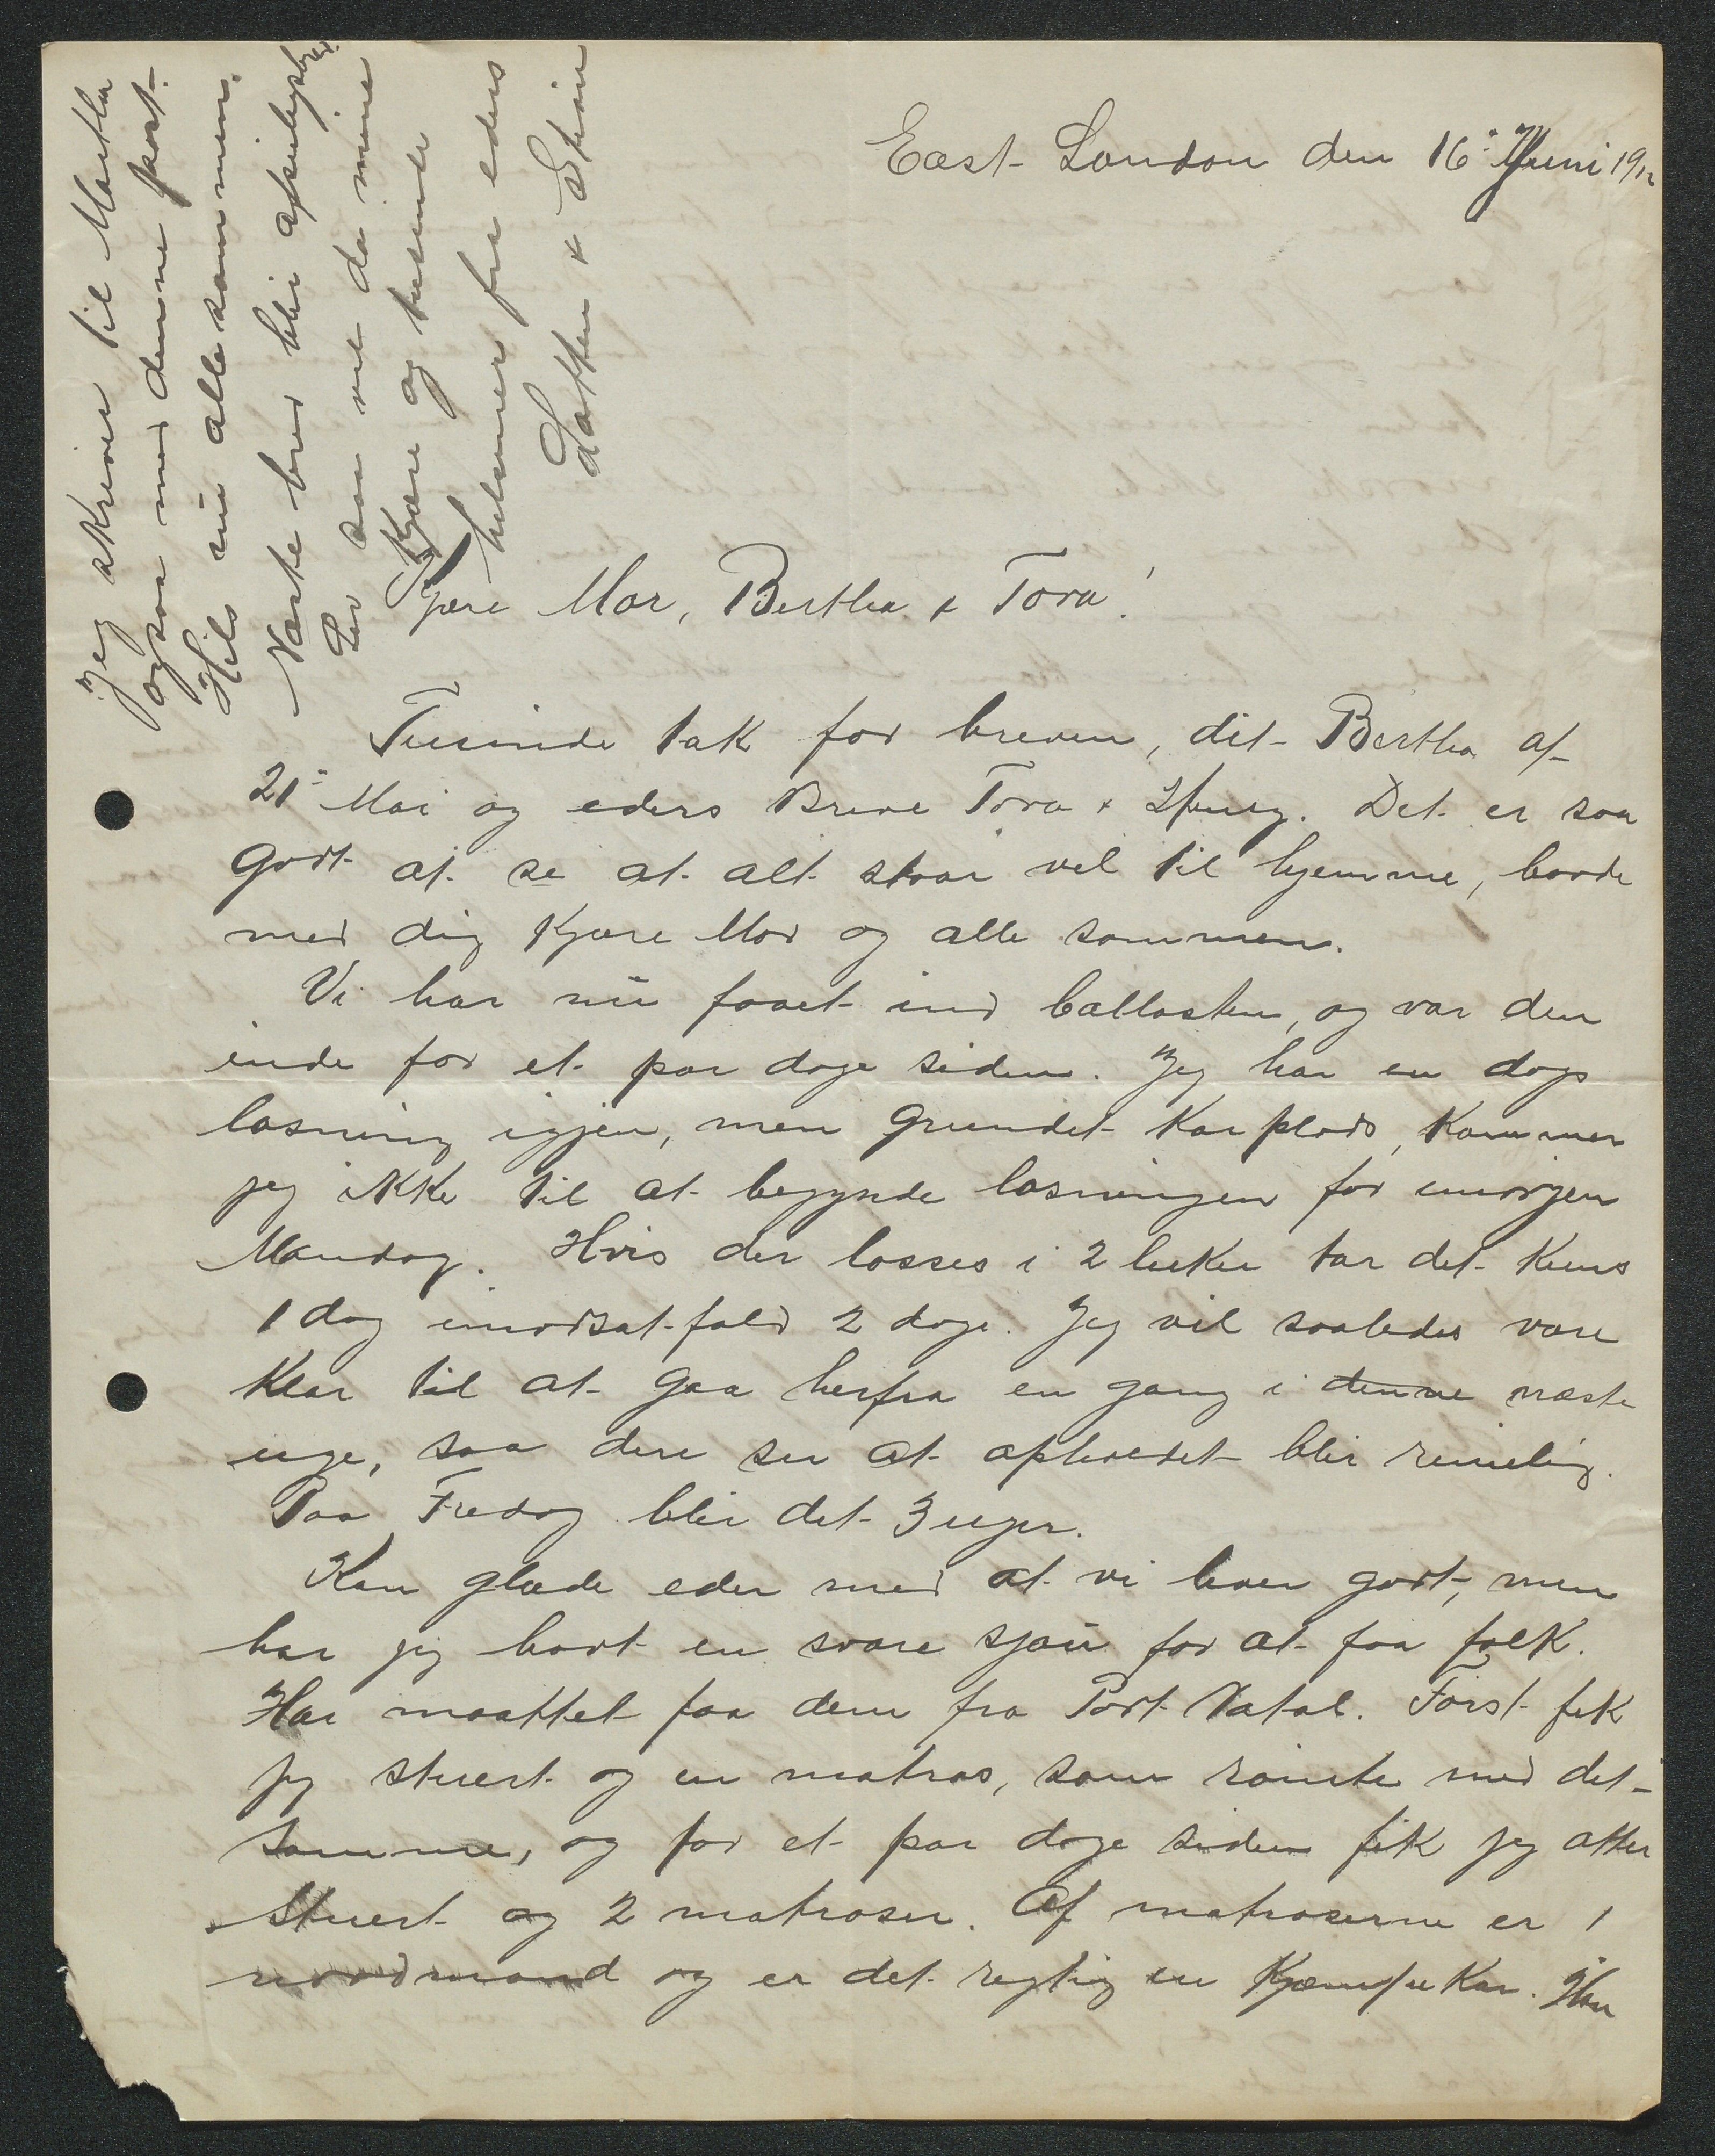 East-London den 16de Juni 1912
Kjære Mor, Bertha & Tora!
Tusinde tak for breven, dit Bertha af
21de Mai og eders Breve Tora &. Det er saa
godt at se at alt staar vel til hjemme, baade
med dig Kjære Mor og alle sammen.
Vi har nu faaet ind ballasten, og var den
inde for et par dage siden. Jeg har en dags
losning igjen, men grundet Kai plads, kommer
jeg ikke til at begynde losningen før imorgen
Mandag. Hvis der losses i 2 luker tar det kuns
1 dag imodsat fald 2 dage. Jeg vil saaledes være
klar til at gaa herfra en gang i denne næste
uge, saa dere ser at opholdet blir rimelig.
Paa Fredag blir det 3 uger.
Kan glæde eder med at vi lever godt, men
har jeg havt en svare sjau for at faa folk.
Har maattet faa dem fra Port Natal. Først fik
jeg stuert og en matros, som rømte med det
samme, og for et par dage siden fik jeg atter
Stuert og 2 matroser. Af matroserne er 1
nordmand og er det regtig en Kjæmpe Kar. Han
Jeg skriver til Martha
ogsaa med denne post.
Hils nu allesammen.
Næste brev blir afseilingsbrev.
Lev saa vel da mine
Kjære og tusinde
hilsener fra eders